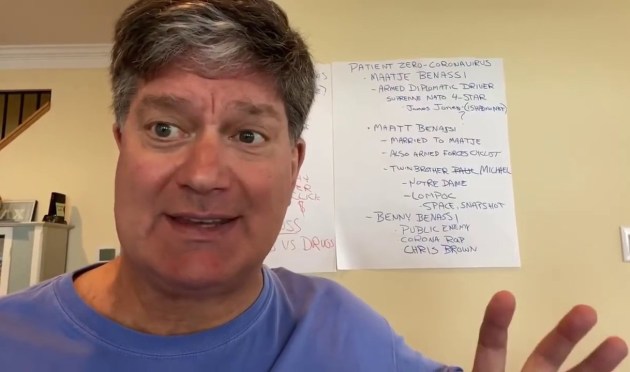 PATIENT ZERO-CORONAVIRUS
- MAATJE BENASSI
- ARMED DIPLOMATIC DRIVER
SUPREME NATO 4-STAR
James Jones
?
• MAATT BENASSI
- MARRIED TO MAATJE
- ALSO ARMED FORCES CYCLIST
- TWIN BROTHER MICHAEL
- NOTRE DAME
- LOMPOC
- SPACE, SNAPSHOT
- BENNY BENASSI
PUBLIC ENEMY
CORONA RAP
CHRIS BROWN
$
VS DRUGS